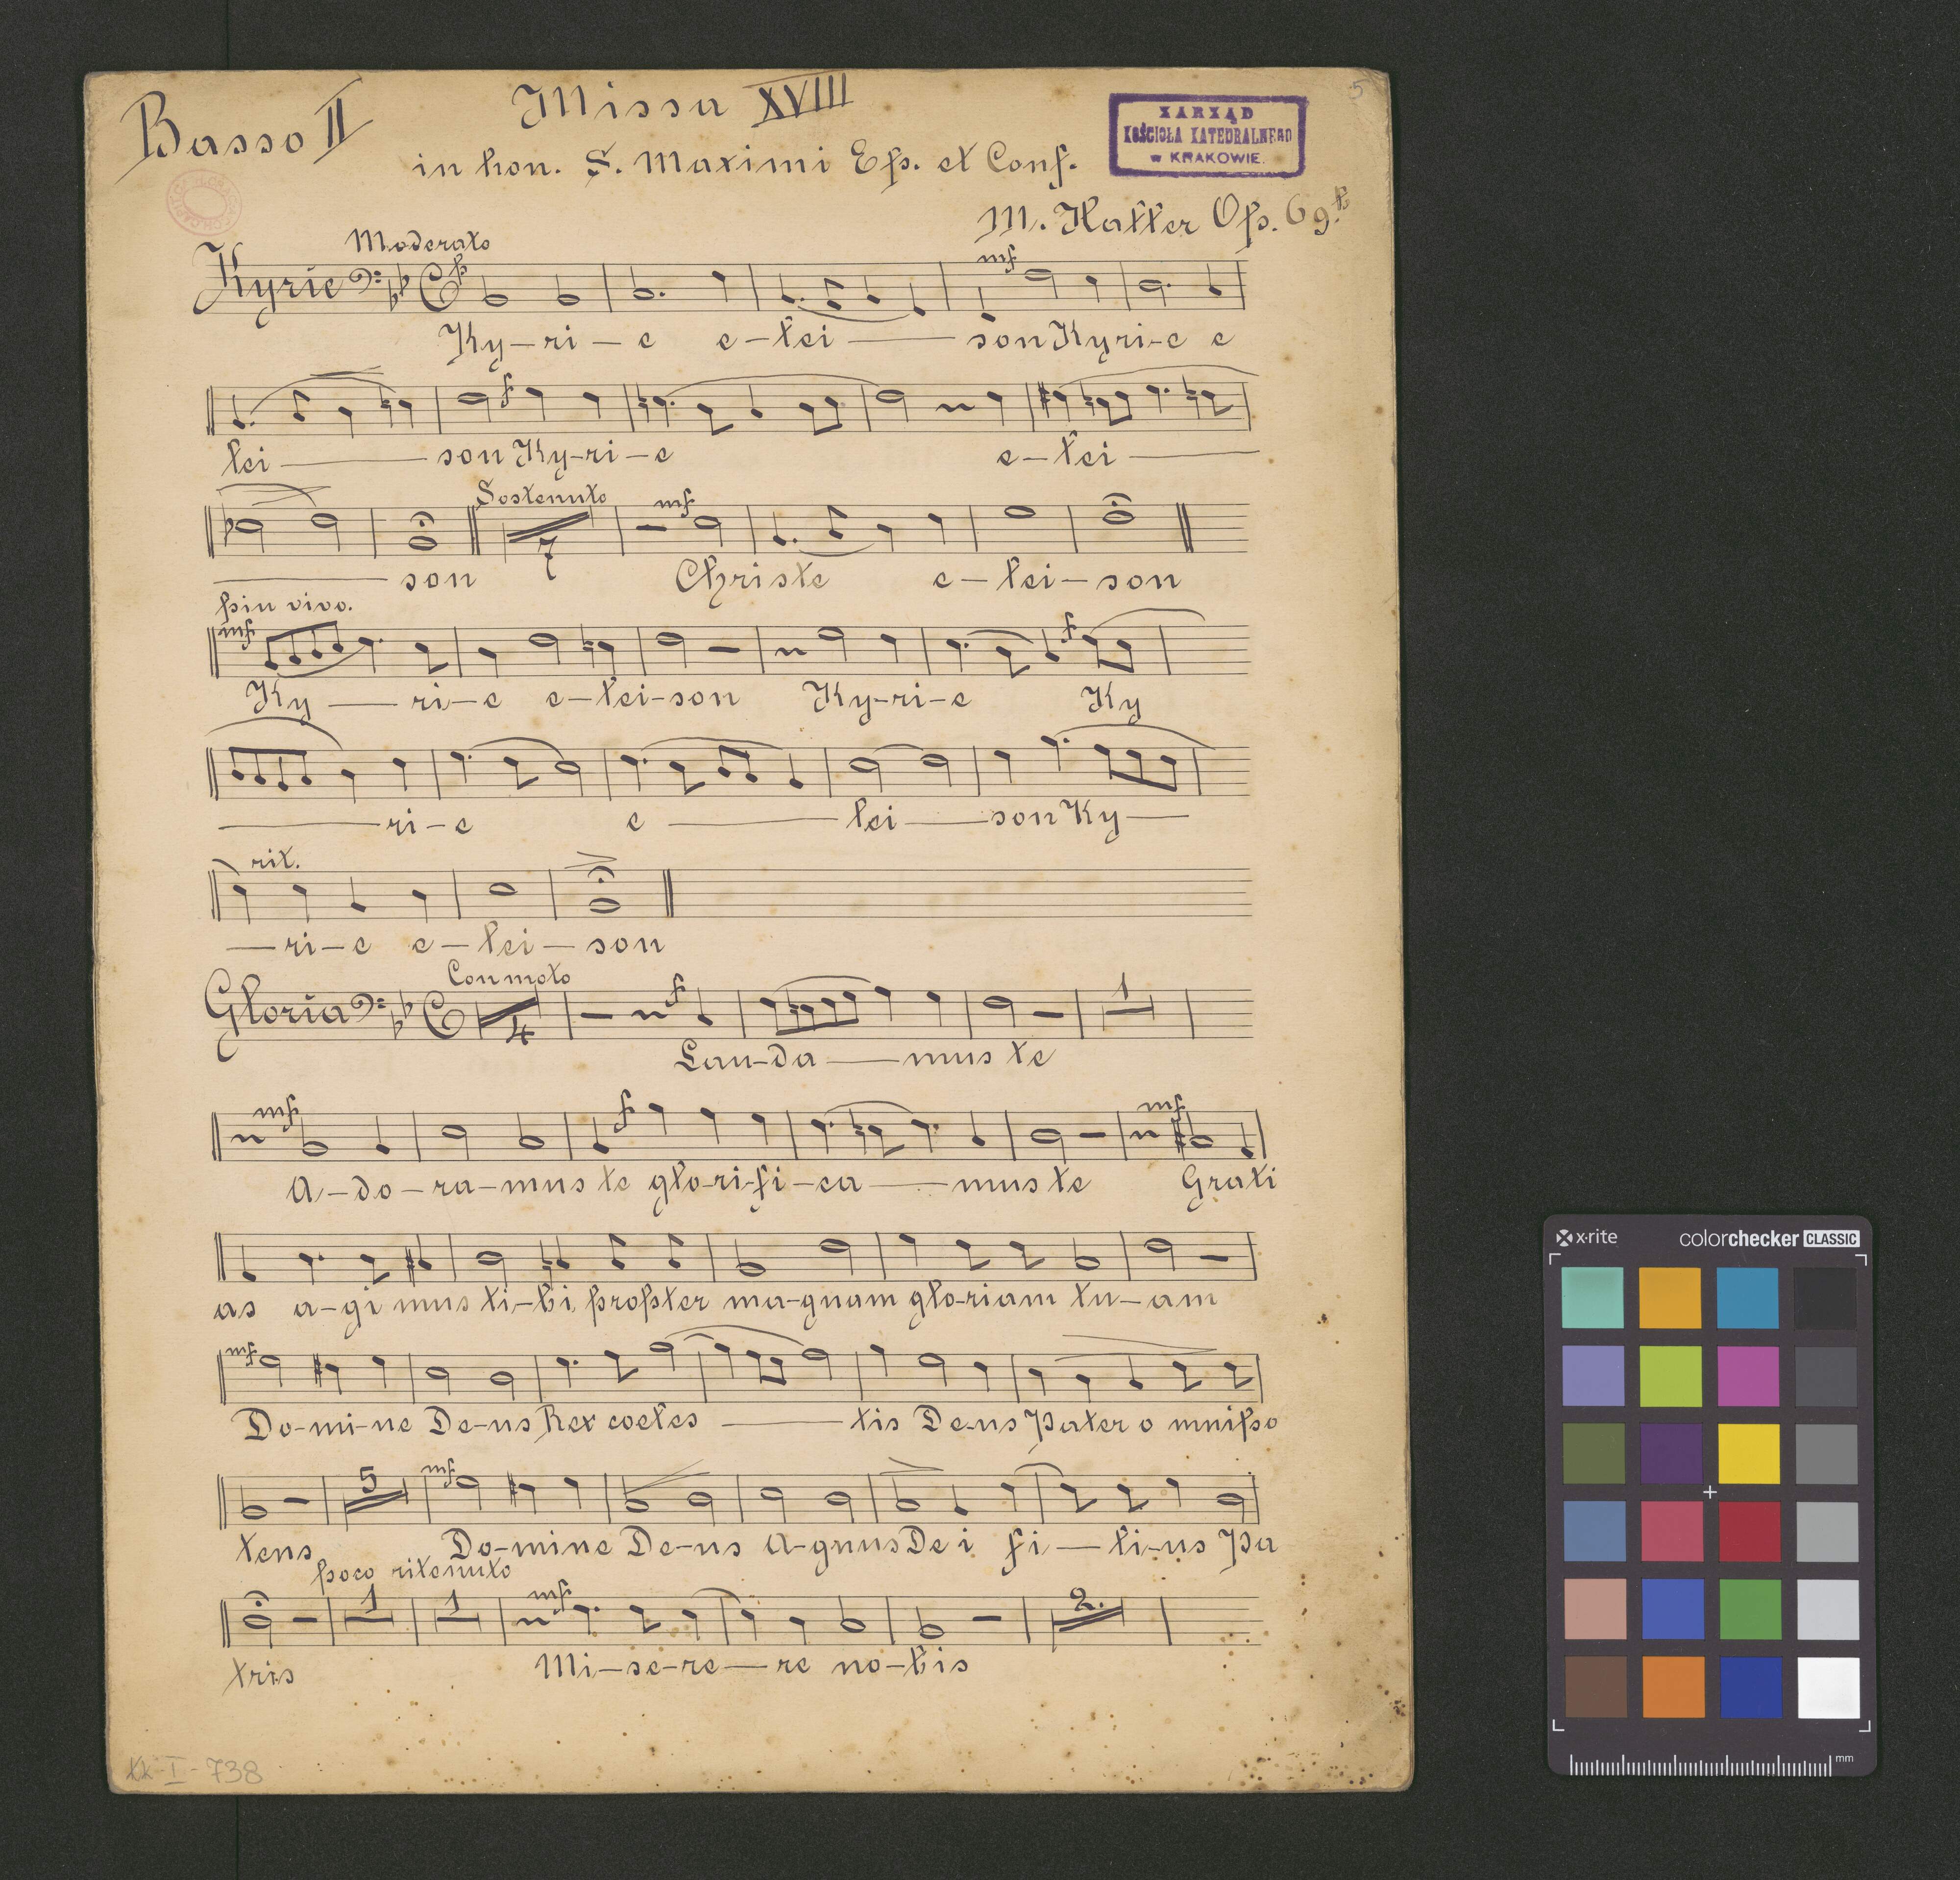 Basso II
Missa XVIII
5
in hon. S. Maximi Ep. et Conf.
ZARZĄD
KOŚCIOŁA KATEDRALNEGO
w KRAKOWIE.
M. Haller Op. 69.b
Moderato
Kyrie
p mf
Ky-ri-e e-lei son Kyri-e e
f
lei son Ky-ri-e e-lei
Sostenuto
7 mf
son Christe e-lei-son
piu vivo.
mf f
Ky ri-e e-lei-son Ky-ri-e Ky
ri-e e lei son Ky
rit.
ri-e e-lei-son
Con moto
Gloria
4 f 1
Lau-da mus te
mf f mf
A-do-ra-mus te glo-ri-fi-ca mus te Grati
as a-gi mus ti-bi propter ma-gnam glo-riam tu-am
mf
Do-mi-ne De-us Rex coeles tis De-us Pater o mnipo
5 mf
tens Do-mine De-us A-gnus De i fi-li-us Pa
poco ritenuto
1 1 mf 2.
tris Mi-se-re-re no-bis
Kk-I-738
x-rite colorchecker CLASSIC
mm